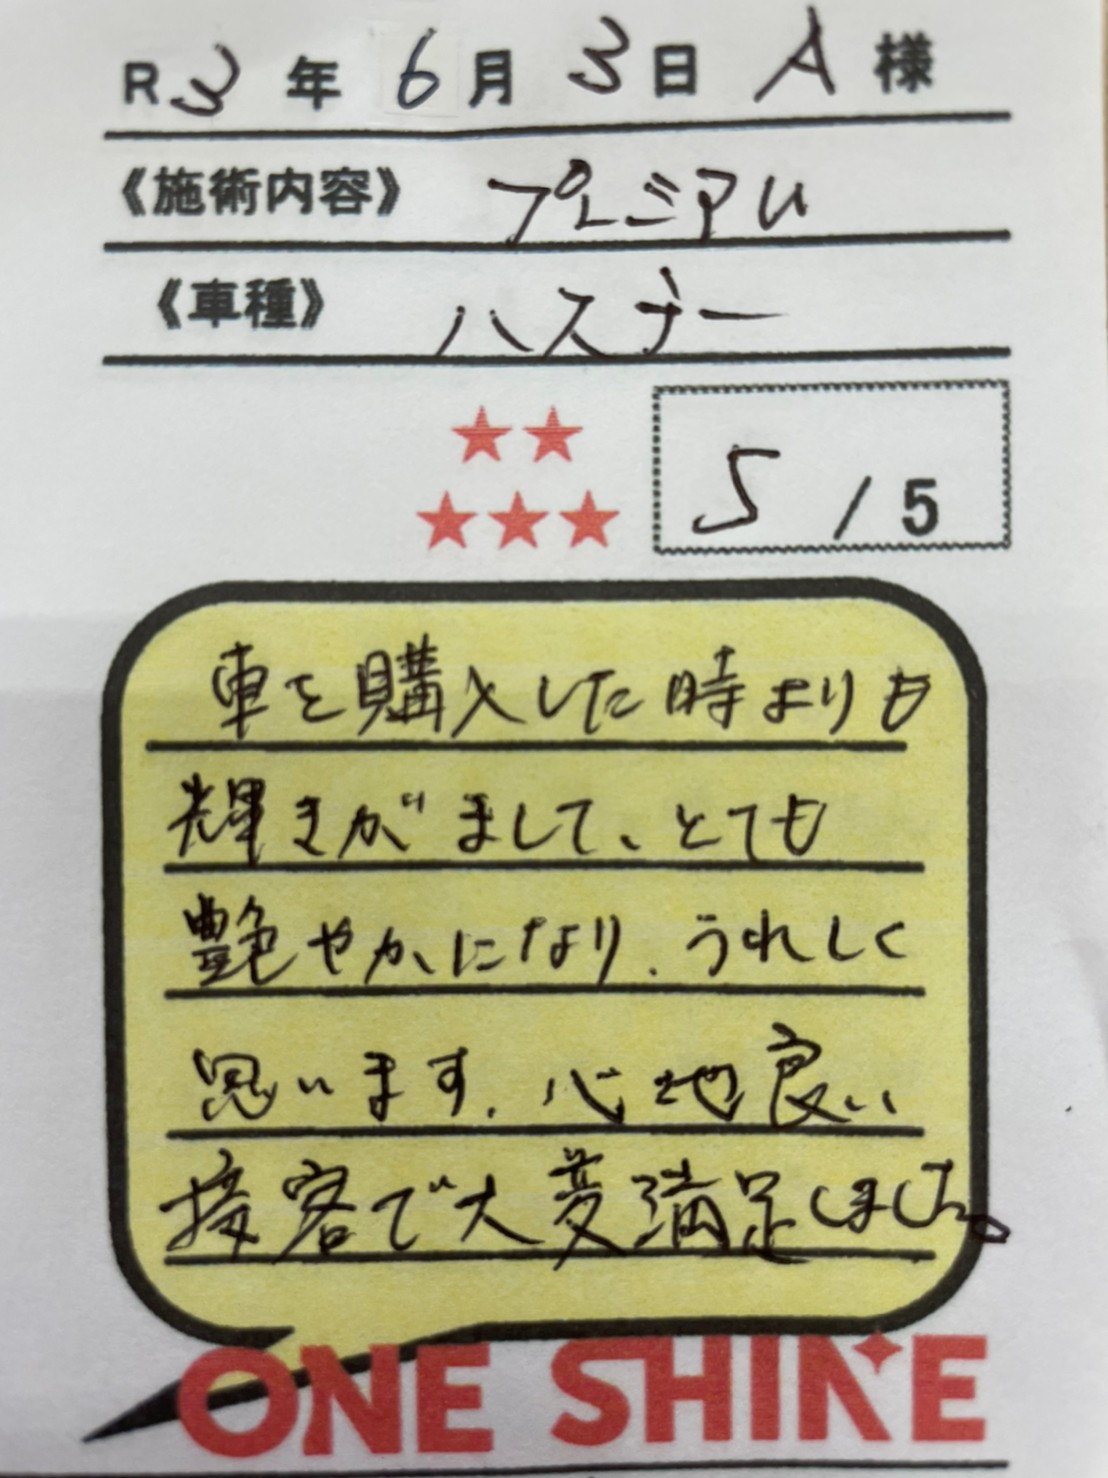 R3年 6月 3日 A 様
《施術内容》 プレミアム
《車種》 ハスラー
5 / 5
車を購入した時よりも
輝きがまして、とても
艶やかになり、うれしく
思います。心地良い
接客で大変満足しました。
ONE SHINE